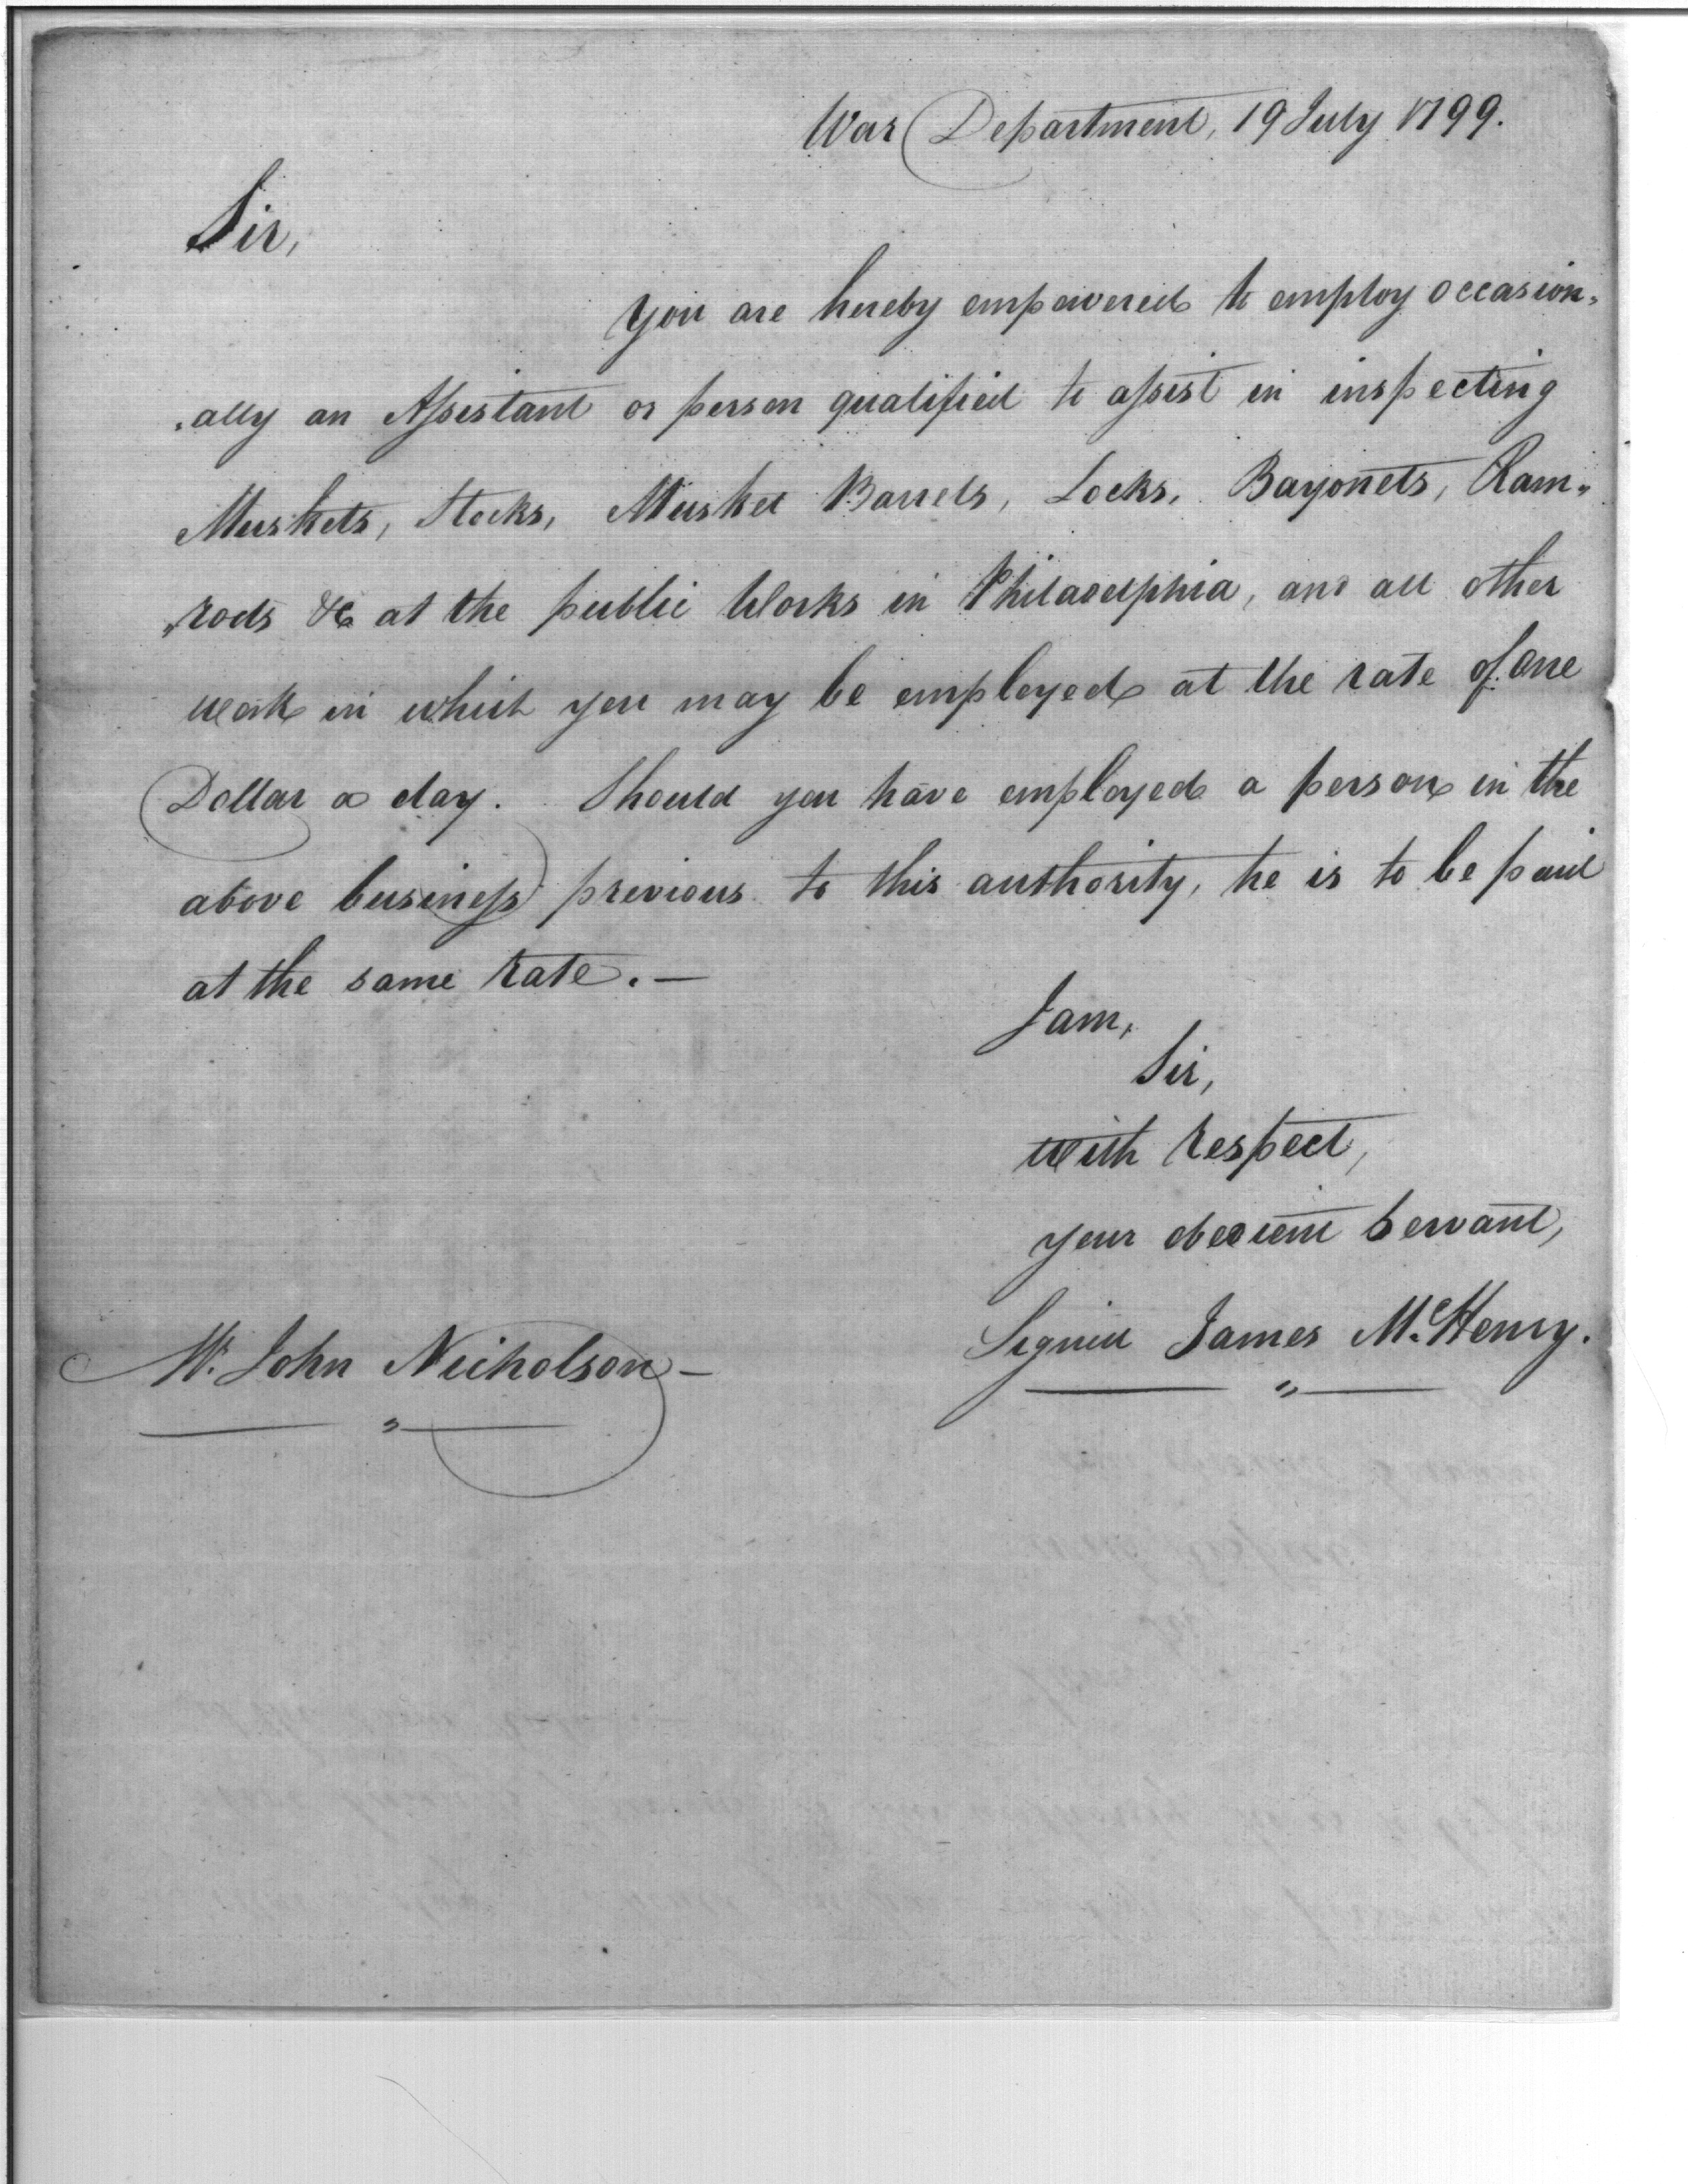 War Department, 19 July 1799.
Sir,
You are hereby empowered to employ occasion-
-ally an Assistant or person qualified to assist in inspecting
Muskets, Stocks, Musket Barrels, Locks, Bayonets, Ram-
-rods &c at the public Works in Philadelphia, and all other
work in which you may be employed at the rate of One
Dollar a day. Should you have employed a person in the
above business previous to this authority, he is to be paid
at the same rate. —
I am,
Sir,
with respect,
your obedient Servant,
Signed James McHenry.
Mr. John Nicholson —